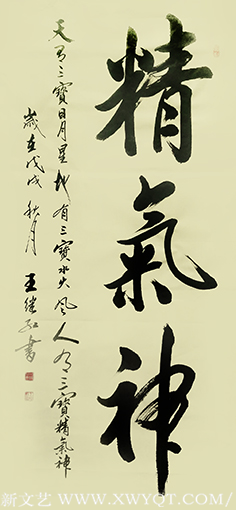 精氣神
天有三寳日月星地有三寳水火風人有三寳精氣神
歲在戊戌秋月
王繼紅書
新文艺 WWW.XWYQT.COM/